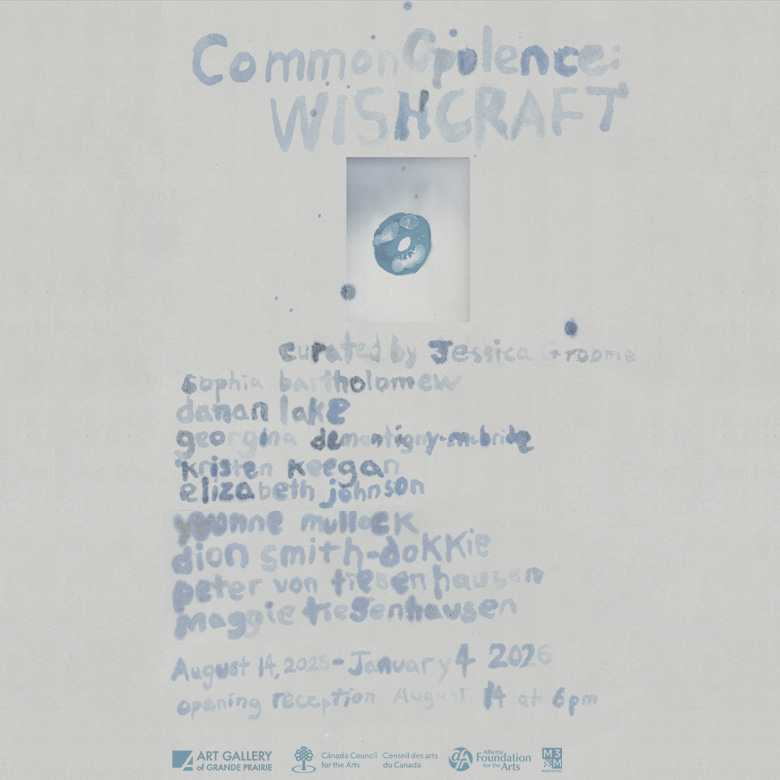 Common Opulence:
WISHCRAFT
curated by Jessica Groome
sophia bartholomew
danan lake
georgina demontigny-mcbride
kristen keegan
elizabeth johnson
yvonne mullock
dion smith-dokkie
peter von tiesenhausen
maggie tiesenhausen
August 14, 2025 - January 4 2026
opening reception August 14 at 6pm
ART GALLERY
of GRANDE PRAIRIE
Canada Council
for the Arts
Conseil des arts
du Canada
Alberta
Foundation
for the Arts
M3
M